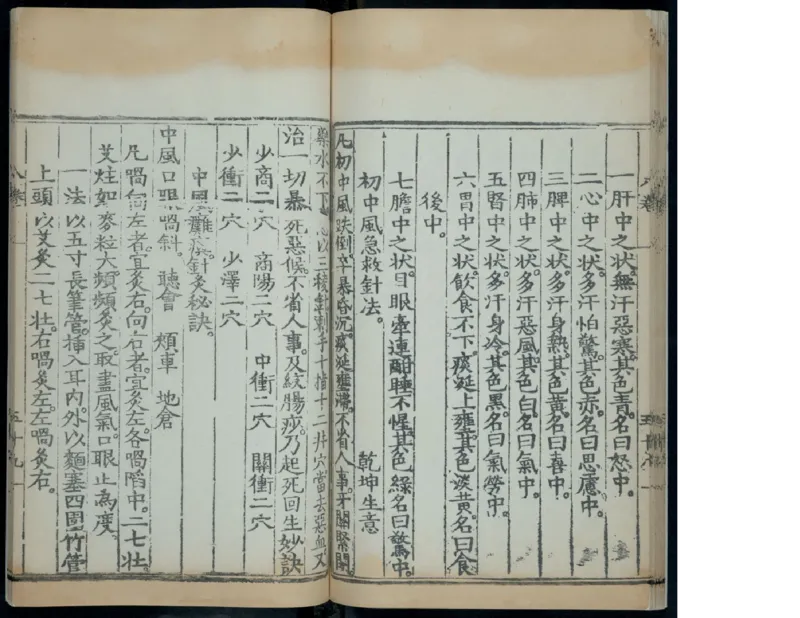 一肝中之狀。無汗惡寒。其色青。名曰怒中。
二心中之狀。多汗怕驚。其色赤。名曰思慮中。
三脾中之狀。多汗身熱。其色黃。名曰喜中。
四肺中之狀。多汗惡風。其色白。名曰氣中。
五腎中之狀。多汗身冷。其色黑。名曰氣勞中。
六胃中之狀。飲食不下。痰涎上壅。其色淡黃。名曰食
後中。
七膽中之狀。目眼牽連。酣睡不惺。其色綠。名曰驚中。
初中風急救針法。 乾坤生意
凡初中風跌倒。卒暴昏沉。痰涎壅滯。不省人事。牙關緊閉。
藥水不下。急以三棱針刺手十指十二井穴。當去惡血。又
治一切暴死惡候。不省人事。及絞腸痧。乃起死回生妙訣
少商二穴 商陽二穴 中衝二穴 關衝二穴
少衝二穴 少澤二穴
中風癱瘓。針灸秘訣。
中風口眼喎斜。聽會 頰車 地倉
凡喎向左者。宜灸右。向右者。宜灸左。各喎陷中。二七壯。
艾炷如麥粒大。頻頻灸之。取盡風氣。口眼止為度。
一法以五寸長筆管。插入耳內。外以麵塞四圍。竹管
上頭以艾灸二七壯。右喎灸左。左喎灸右。